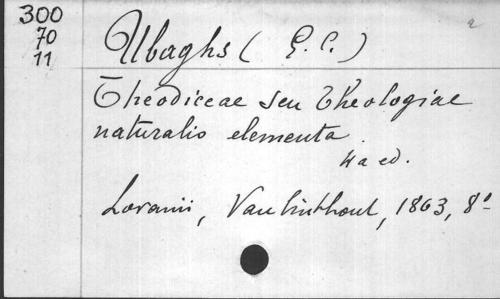 300
70
11
Ubaghs ( G. C. )
Theodiceae seu Theologiae
naturalis elementa
4a ed.
Lovanii, Vanlinthout, 1863, 8°